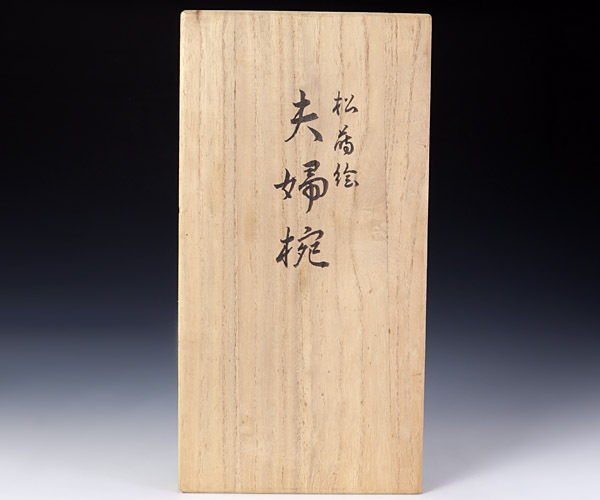 松蒔絵
夫婦椀